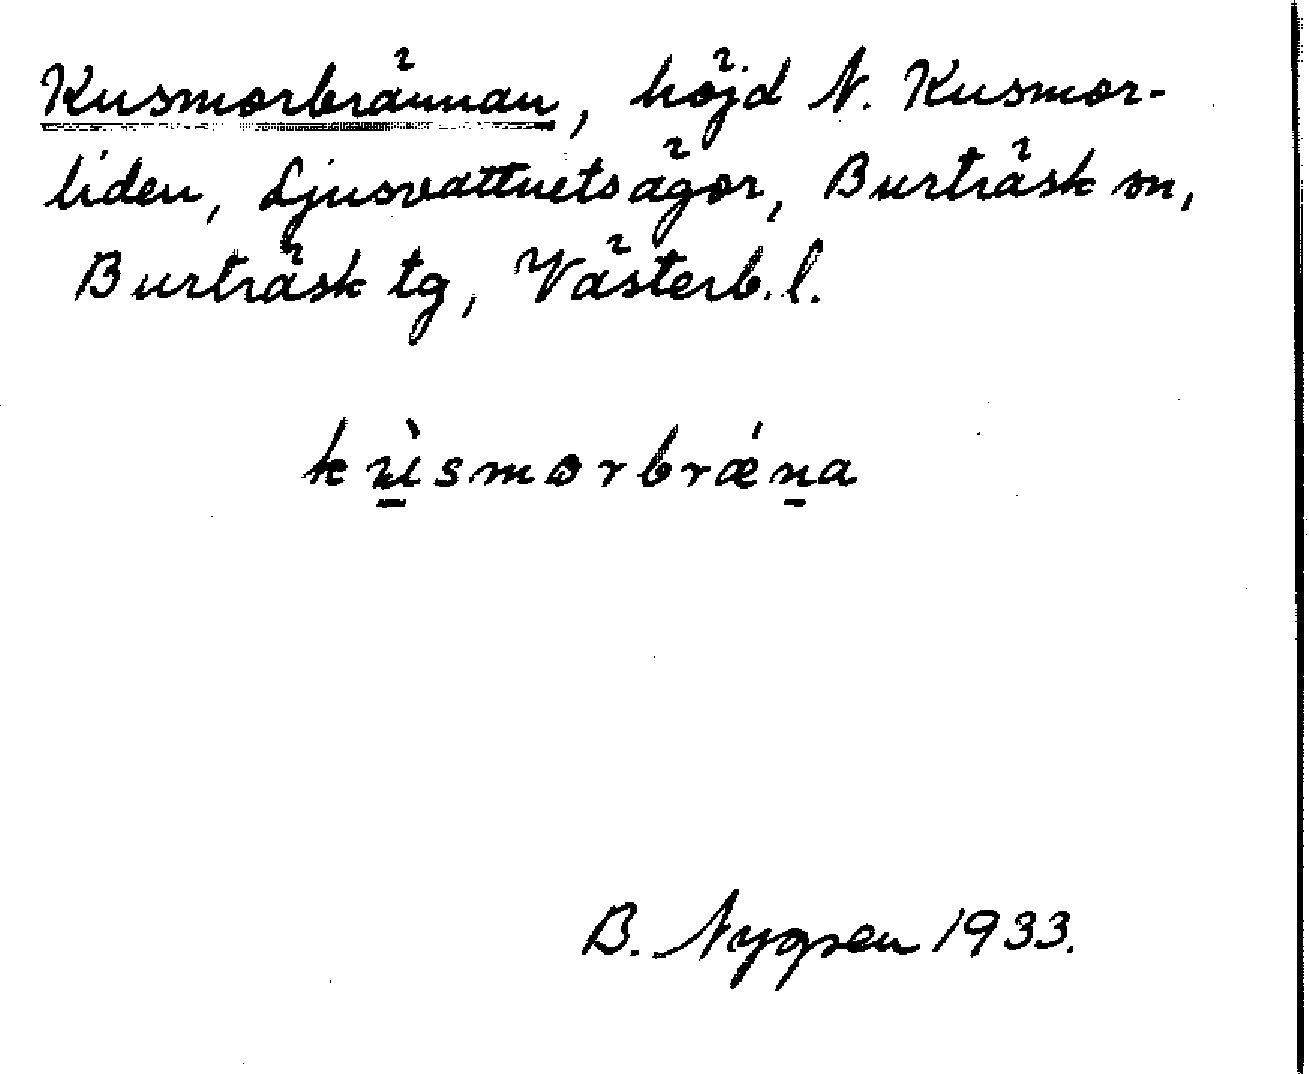 Kusmorbrännan, höjd N. Kusmor-
liden, Ljusvattnets ägor, Burträsk sn,
Burträsk tg, Västerb. l.
kùsmorbrǽṉa
B. Nygren 1933.